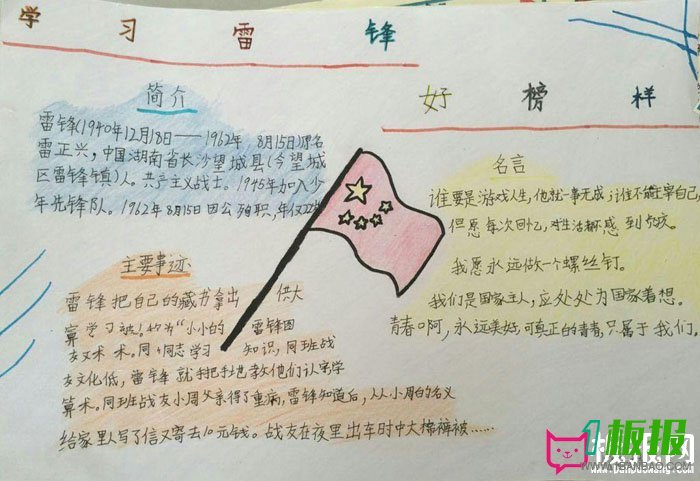 学习雷锋
好榜样
简介
雷锋(1940年12月18日——1962年8月15日)原名
雷正兴，中国湖南省长沙望城县(今望城
区雷锋镇)人。共产主义战士。1945年加入少
年先锋队。1962年8月15日因公殉职，年仅22
主要事迹
雷锋把自己的藏书拿出 供大
学习被 称为“小小的 雷锋图
术。同 同志学习 知识，同班战
友文化低，雷锋就手把手地教他们认字学
算术。同班战友小周父亲得了重病，雷锋知道后，从小周的名义
给家里写了信又寄去10元钱。战友在夜里出车时中大棉裤被……
名言
谁要是游戏人生，他就一事无成；谁不能主宰自己，
但愿每次回忆，对生活都不感到负疚。
我愿永远做一个螺丝钉。
我们是国家主人，应处处为国家着想。
青春啊，永远美好，可真正的青春，只属于我们。
1板报
WWW.1BANBAO.COM